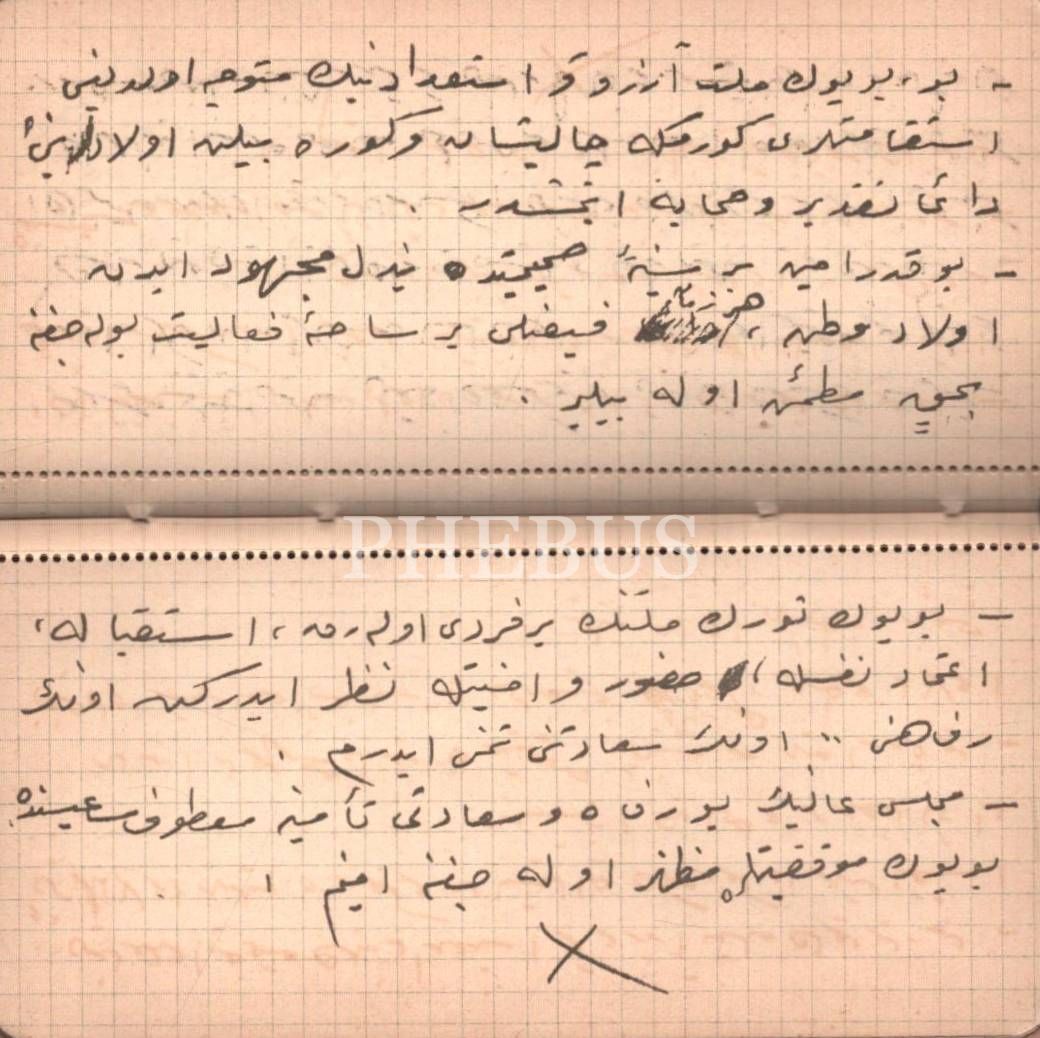 - بو، بویوك ملت آرزو و استعدادینك متوجه اولدیغی
استقامتلری كورمكه چالیشان و كوره بیلن اولادینی
دائما تقدیر و حمایه ایتمشدر .
- بو قدر امین بر صمیمیتده بذل مجهود ایدن
اولاد وطن ، هر زمان فیضلی بر ساحهٔ فعالیت بوله جغنه
بحق مطمئن اوله بیلیر .
PHEBUS
- بویوك تورك ملتنك بر فردی اوله رق ، استقباله ،
اعتماد نفسله ، حضور و امنیتله نظر ایدركن اونك
رفاهنی .. اونك سعادتنی تمنی ایدرم .
- مجلس عالینك بو رفاه و سعادتی تأمینه معطوف مساعیسنده
بویوك موفقیتلره مظهر اوله جغنه امینم .